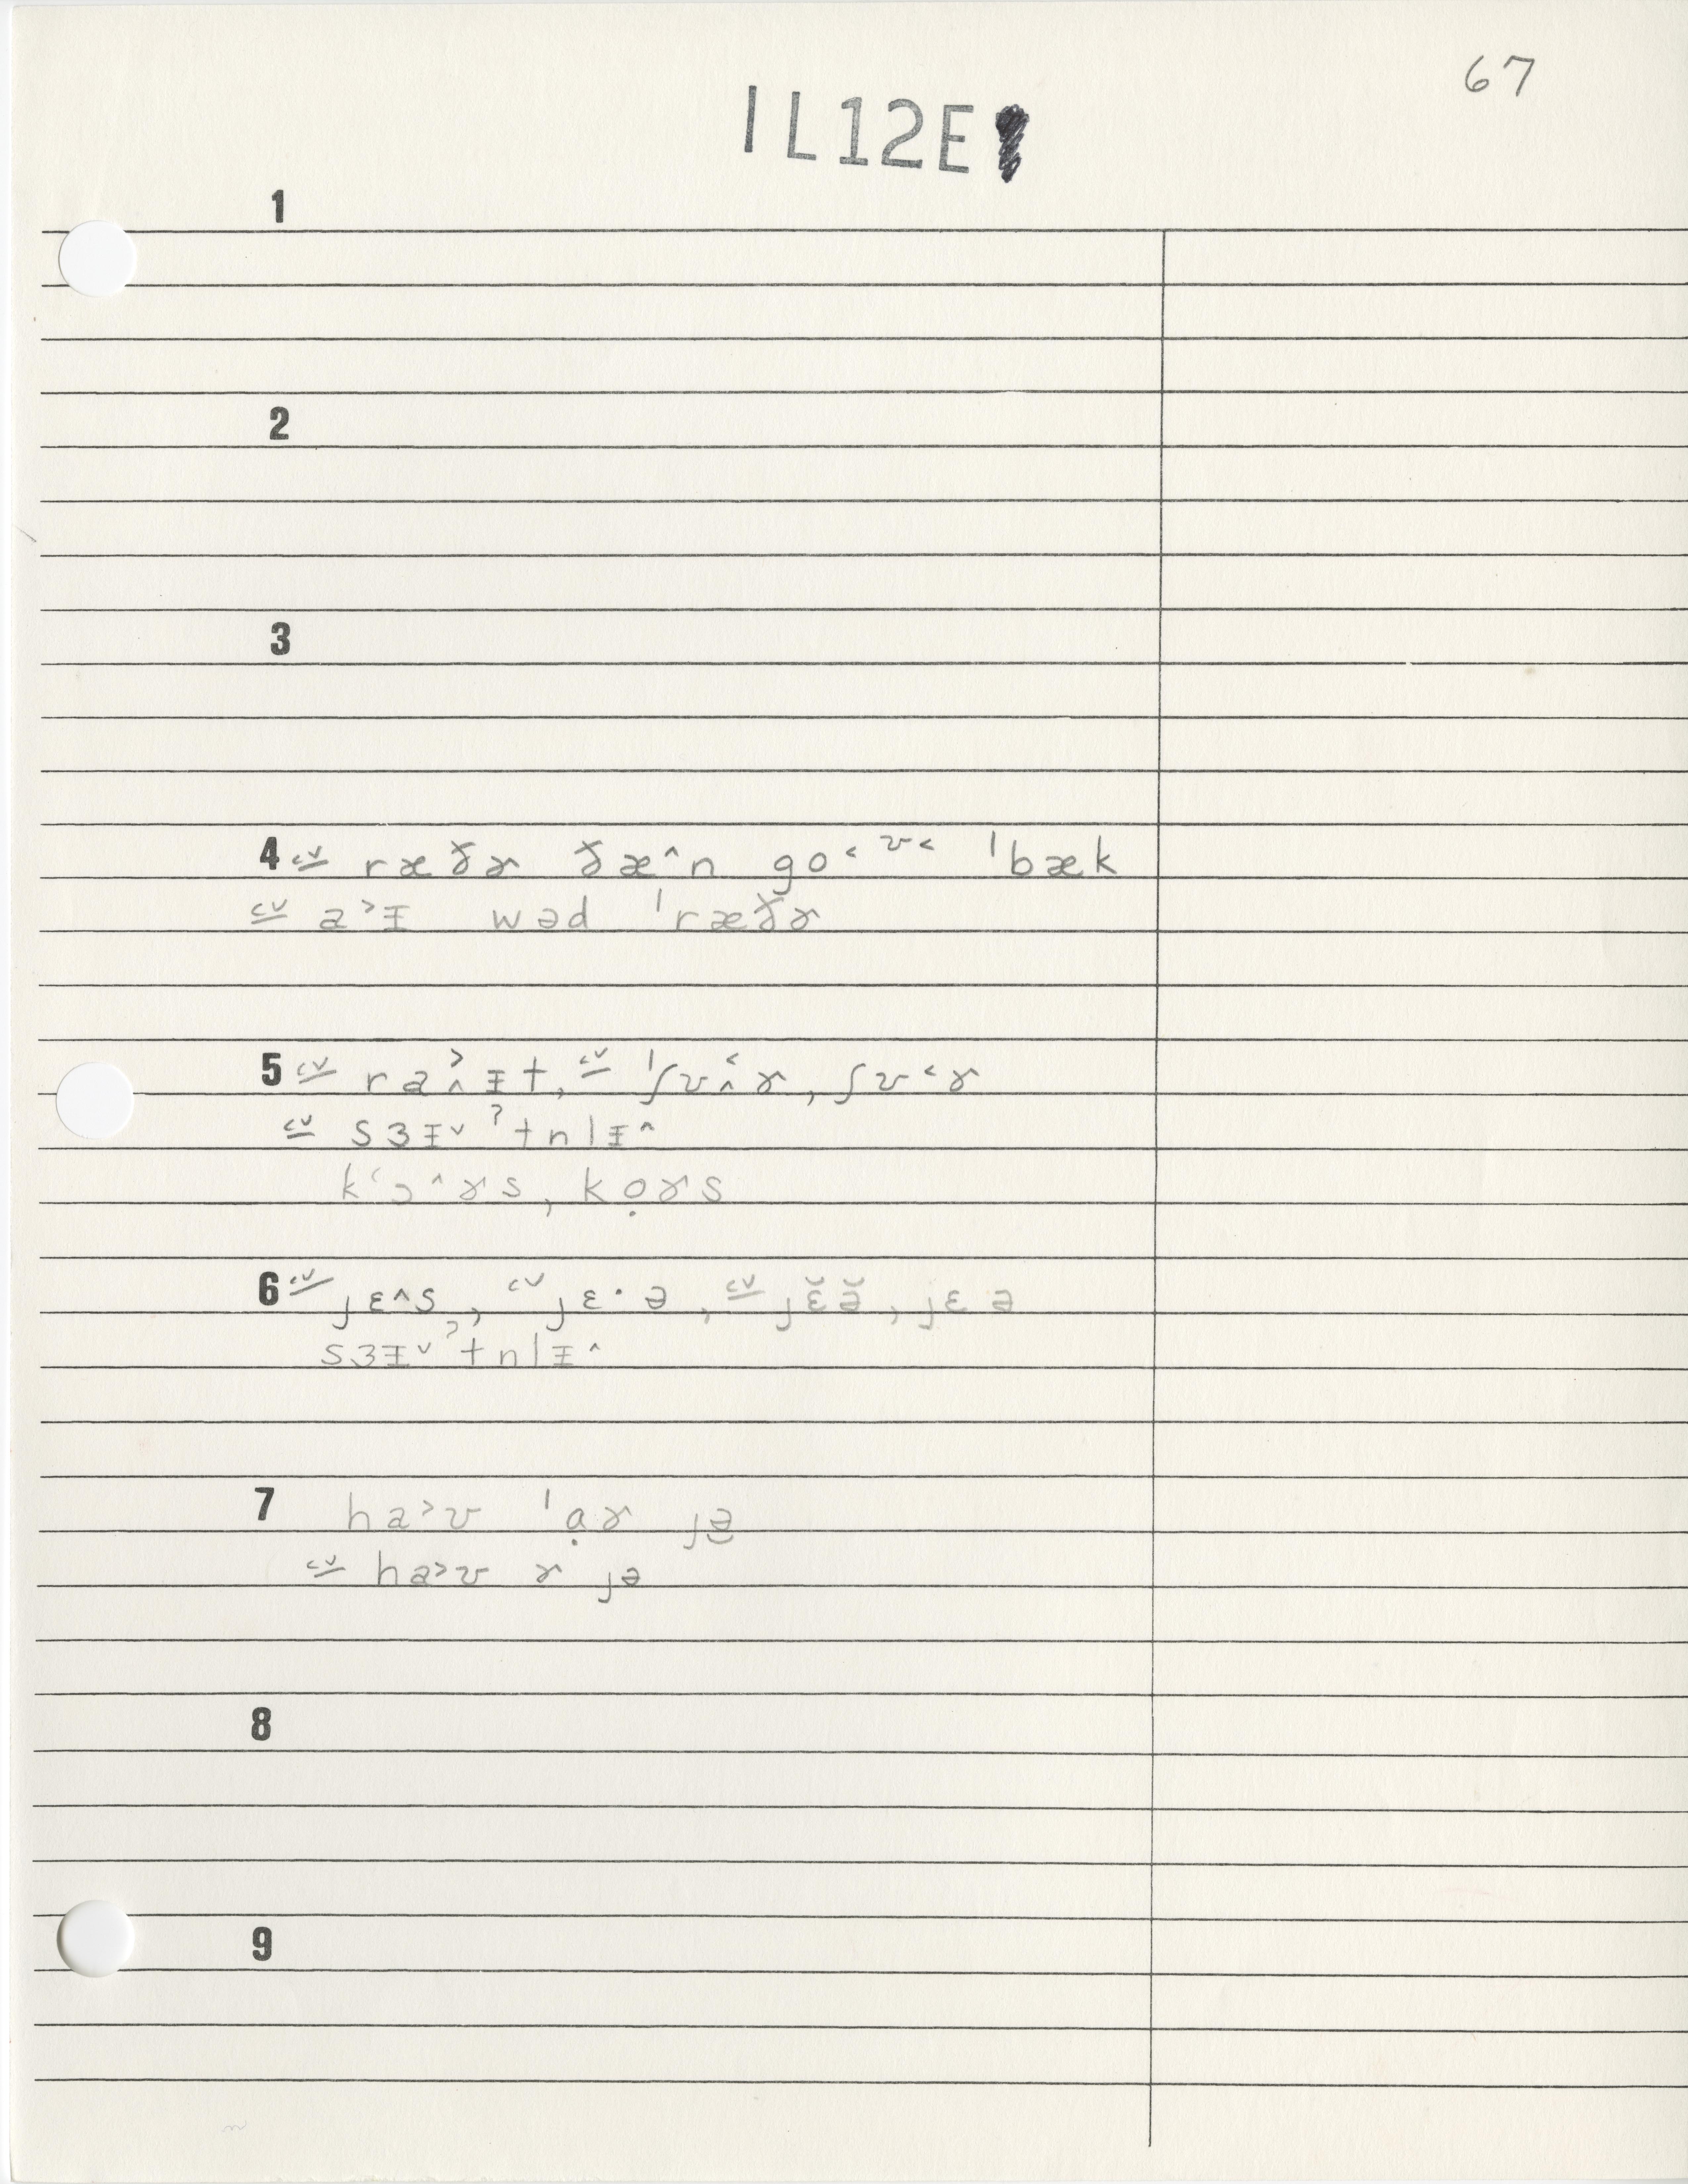 67
1L12E
1
2
3
4 cv ræðɚ ðæ^n go˂ ʊ˂ ˈbæk
cv a˃ɪ wəd ˈræðɚ
5 cv ra˃^ɪt, cv ˈʃʊ˂^ɚ, ʃʊ˂ɚ
cv sɜɪˇ ʔtnlɪ^
kʻɔ^ɚs, kọɚs
6 cv jɛ^s, cv jɛ·ə, cv jɛ̆ə̆, jɛə
sɜɪˇ ʔtnlɪ^
7 ha˃ʊ ˈɑ̣ɚ jə
cv ha˃ʊ ɚ jə
8
9